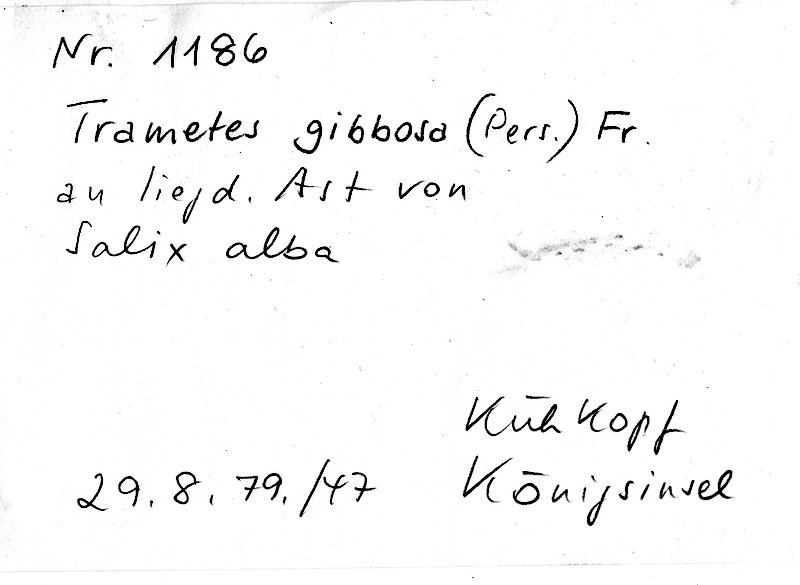 Nr. 1186
Trametes gibbosa (Pers.) Fr.
an liegd. Ast von
Salix alba
Kühkopf
29.8.79./47 Königsinsel